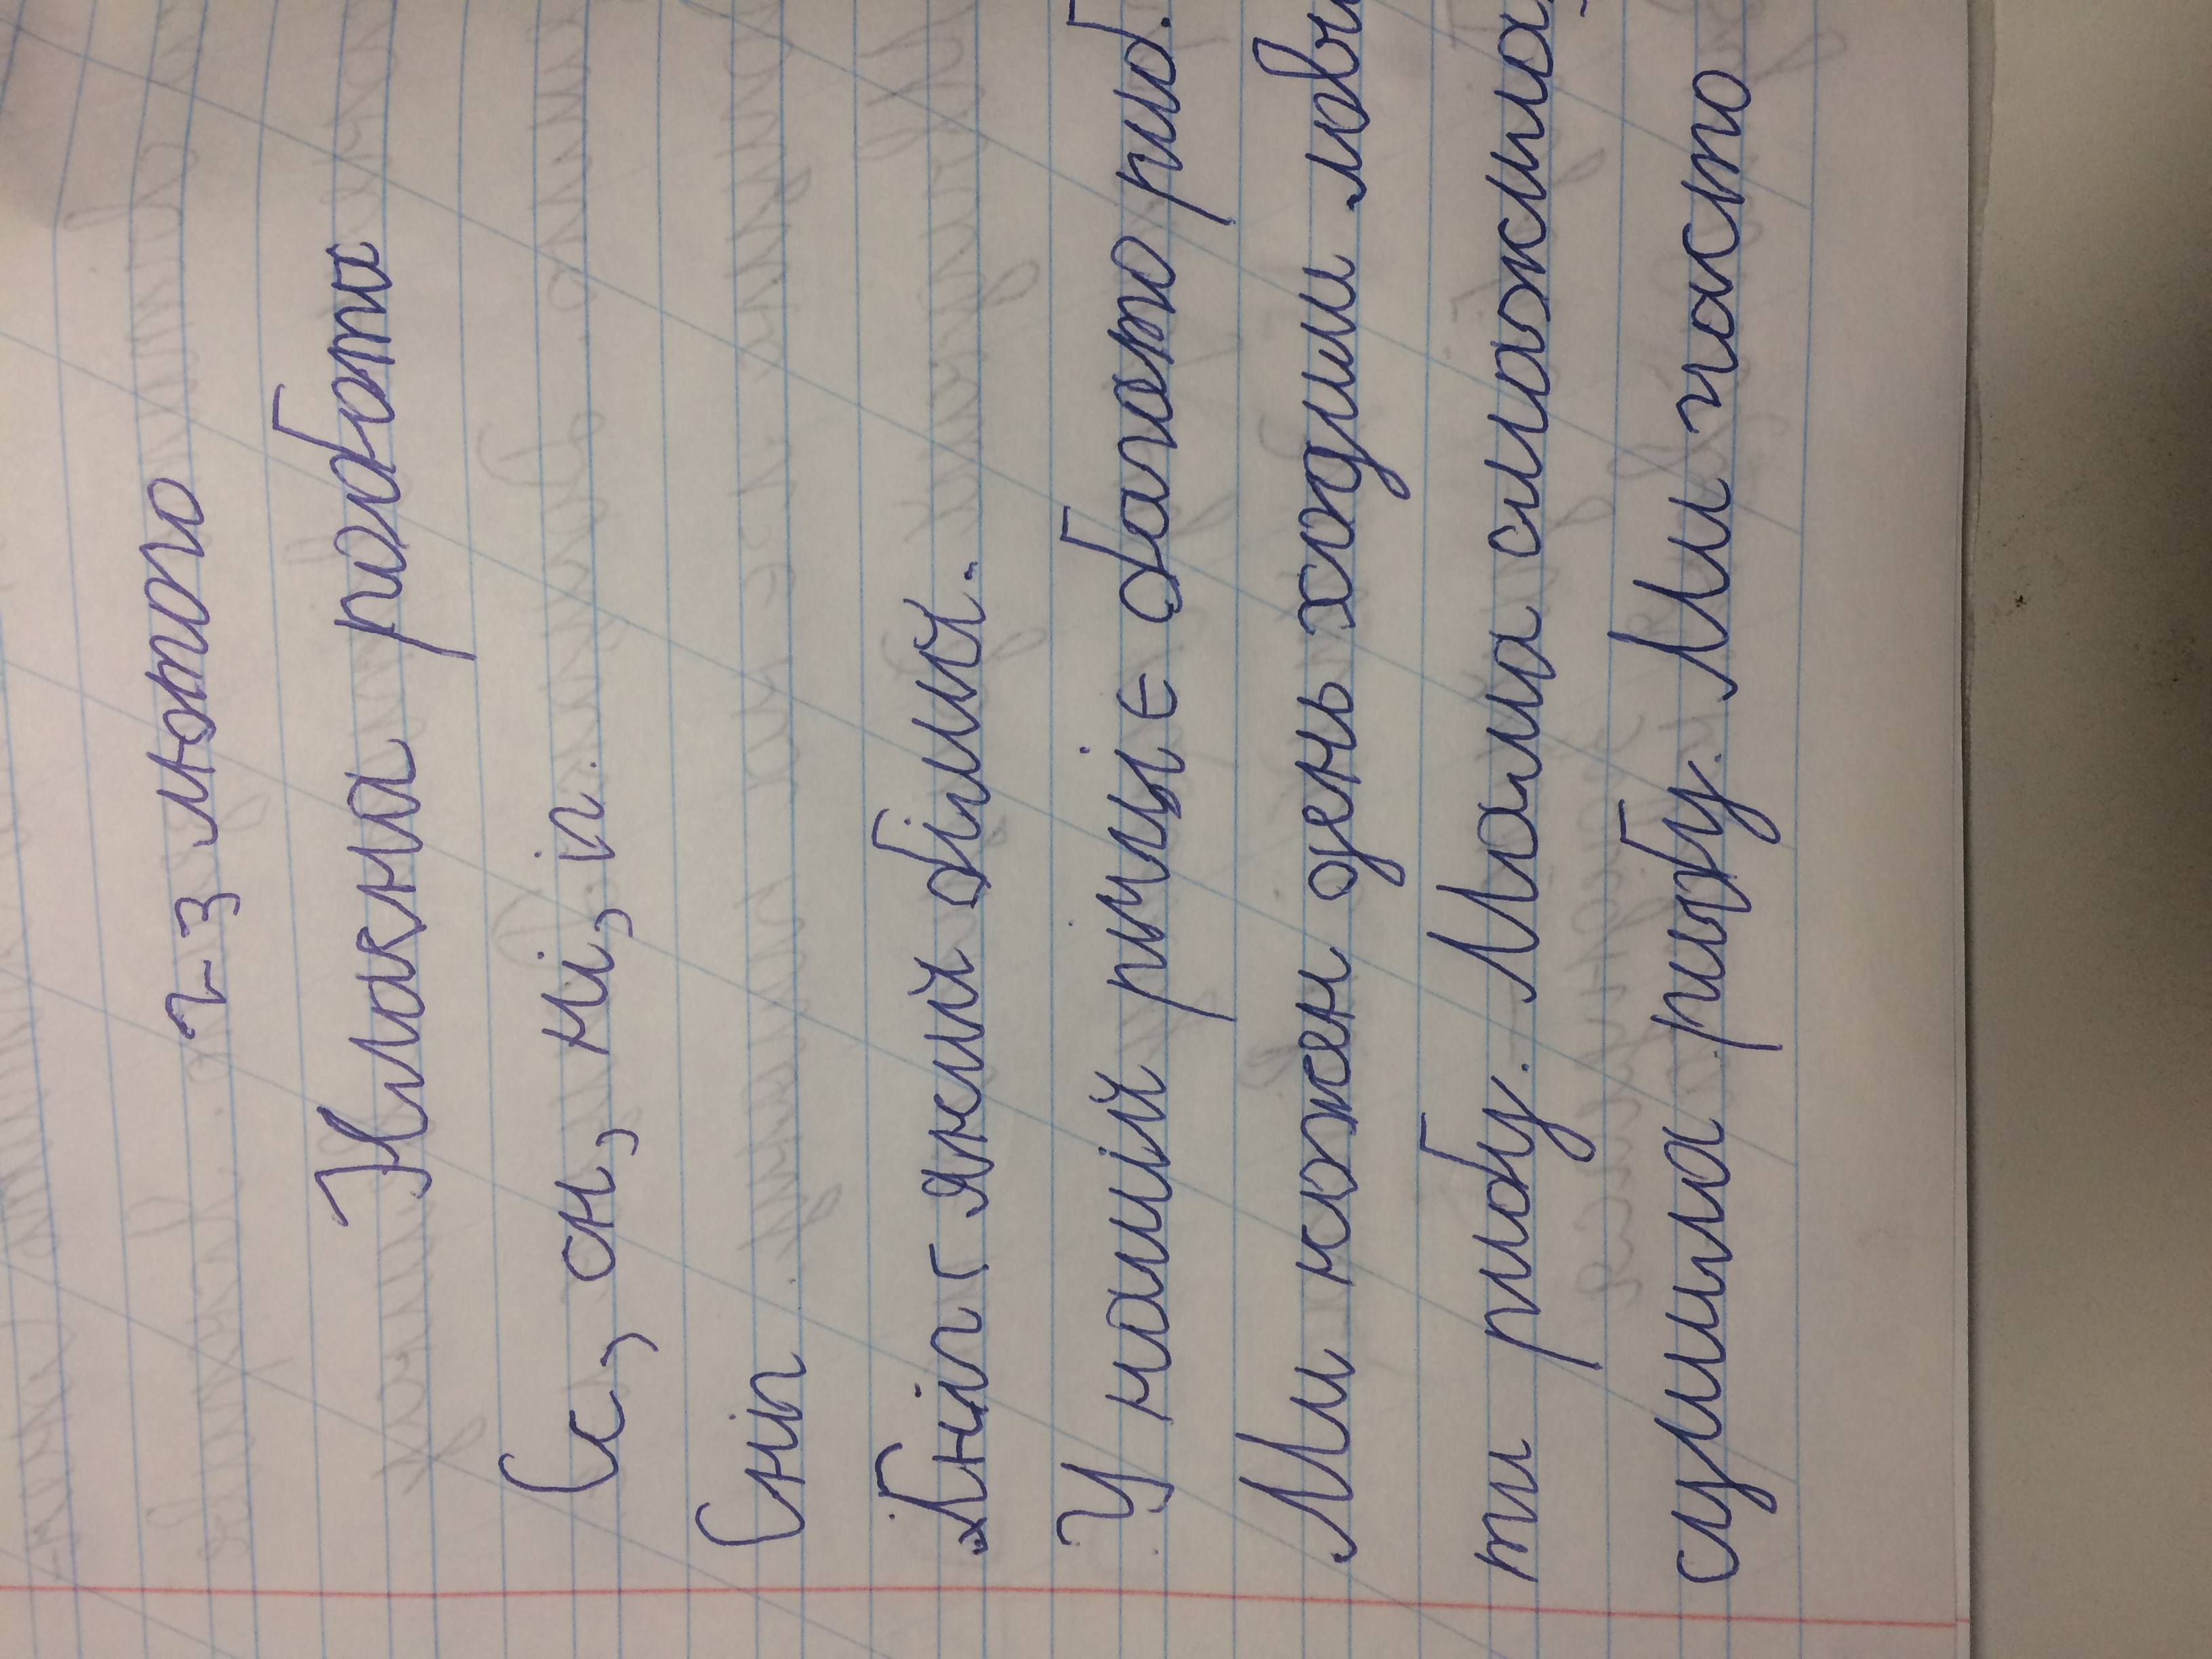 2-3 лютого
Класна робота
Се, сн, ні, іг.
Сніг
Сніг який білий.
У нашій річці є багато риб.
Ми кожен день ходим лови
ти рибу. Мама смажила,
сушила рибу. Ми часто